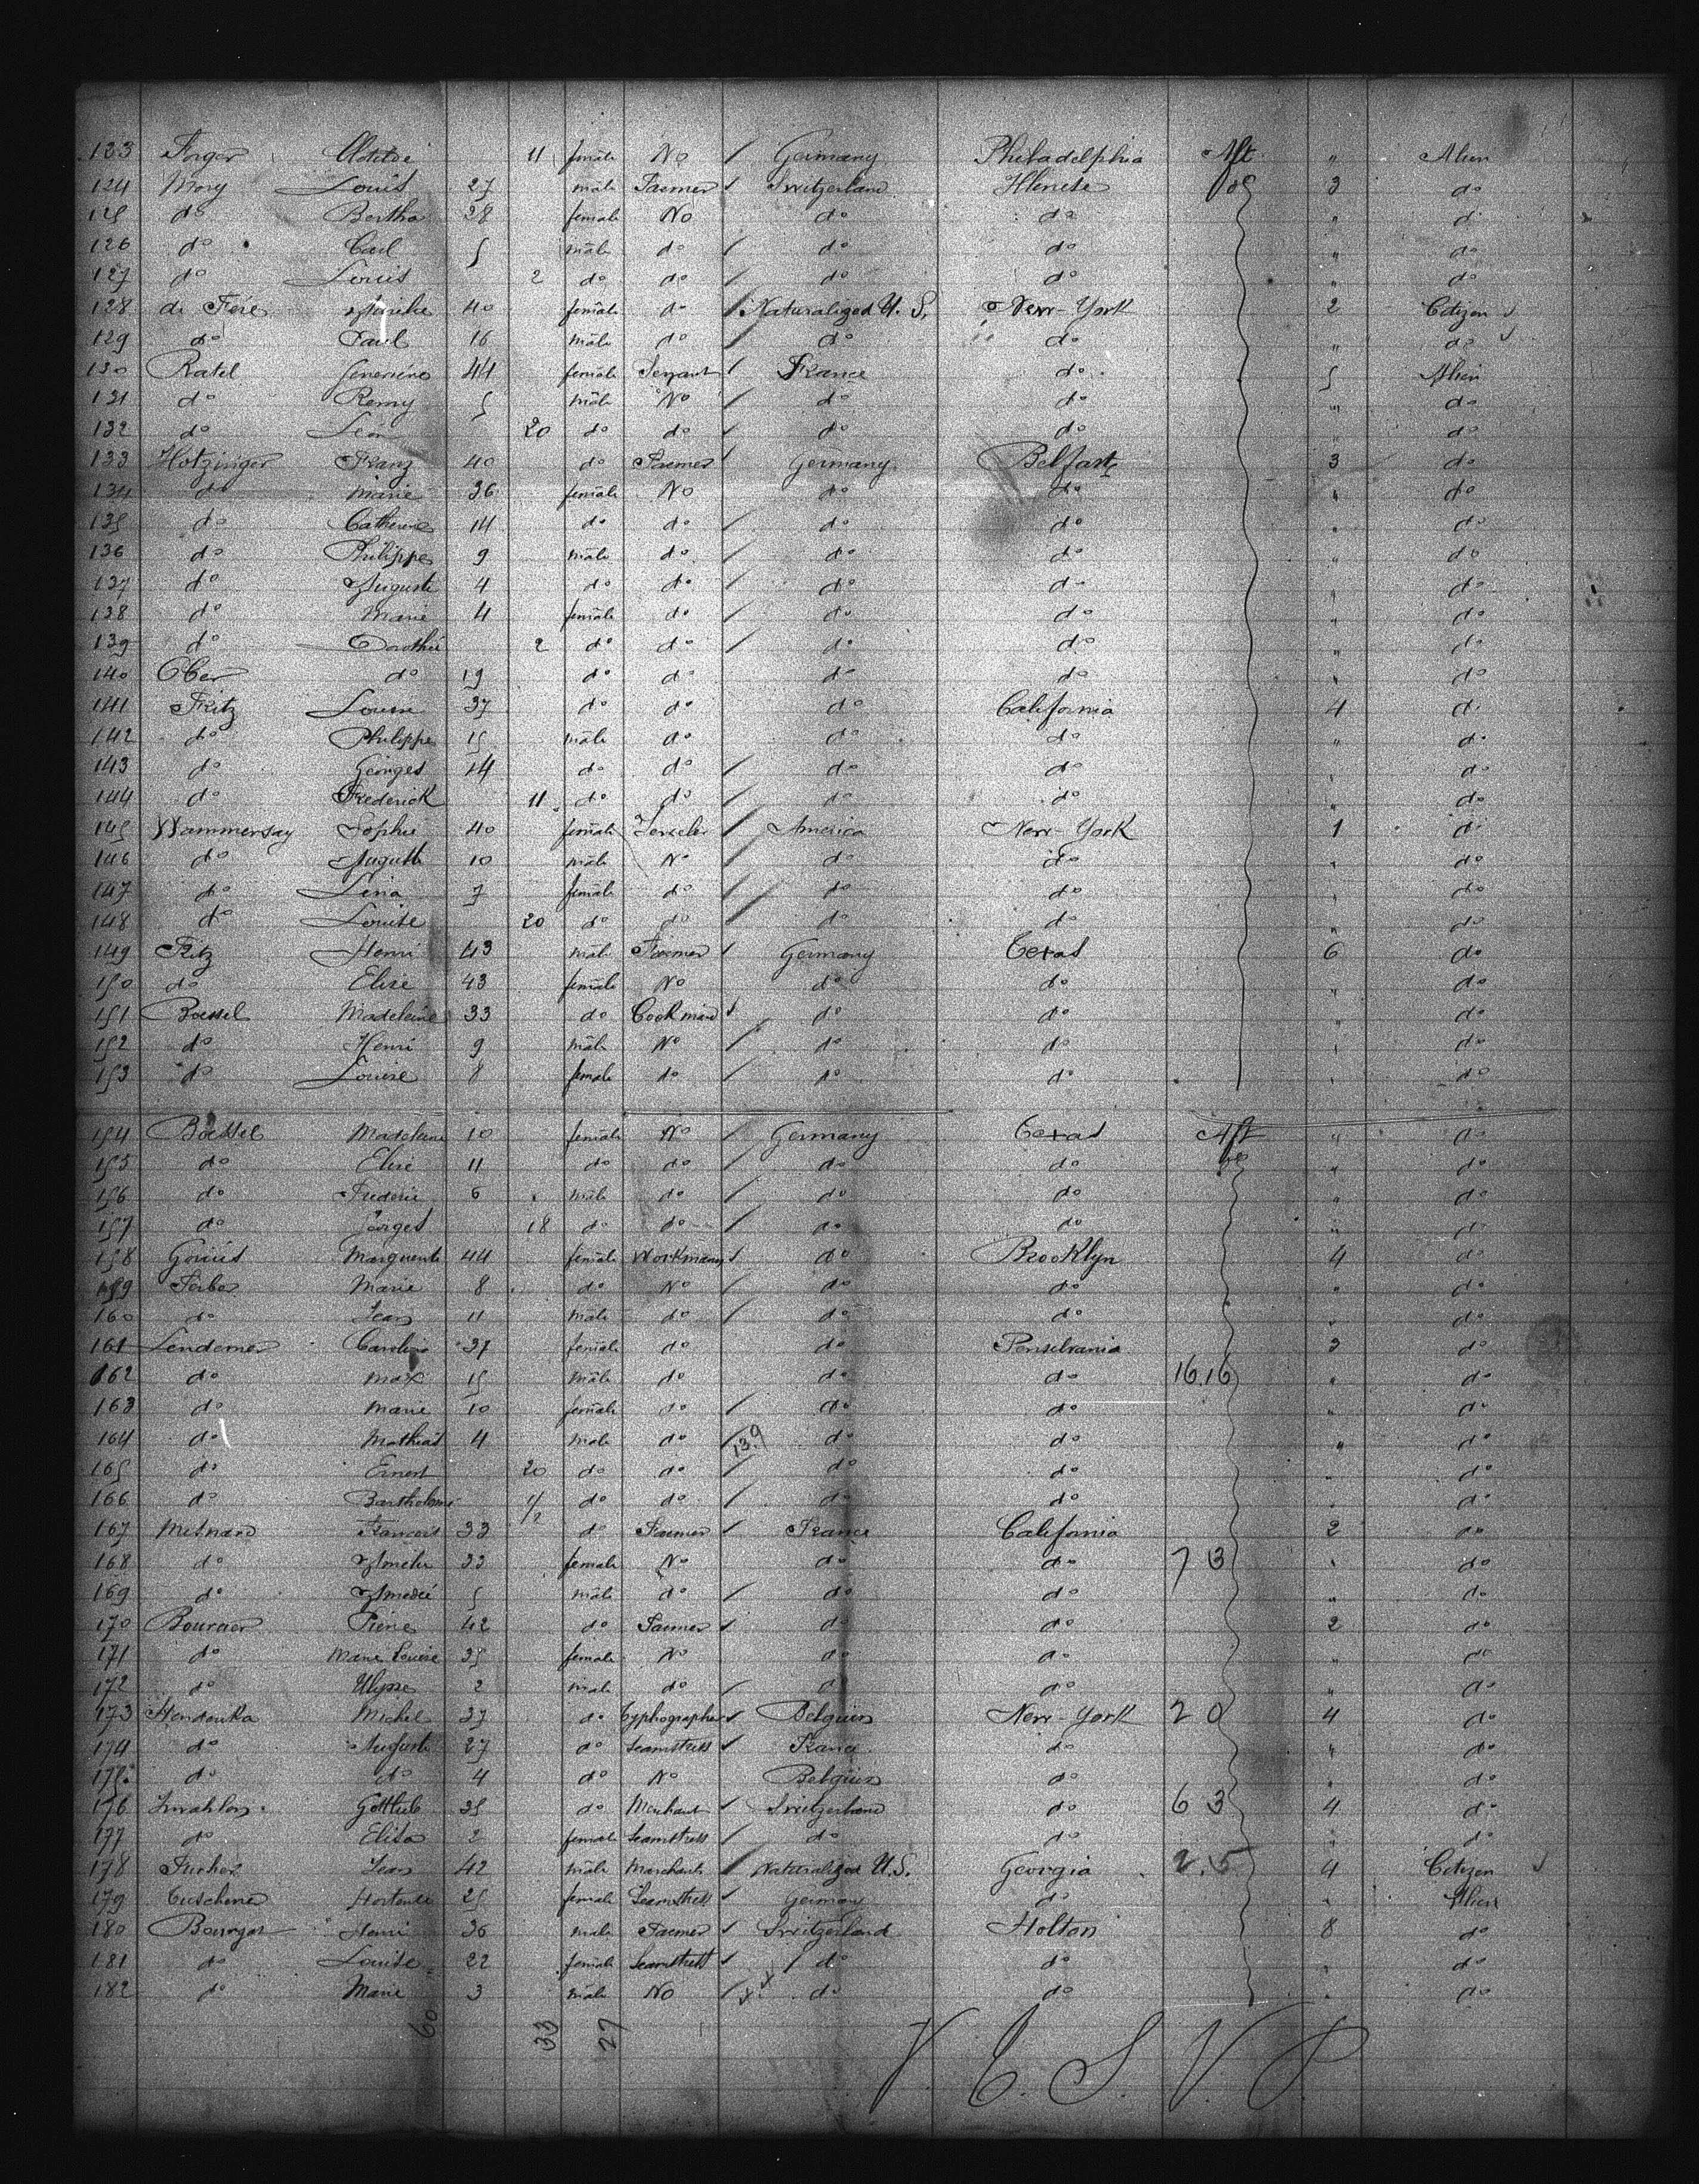 123 Forger Clotilde 11 female No / Germany Philadelphia Aft " Alien
124 Mory Louis 27 male Farmer Switzerland do 3 do
125 do Bertha 28 female No do do " do
126 do Carl 5 male do / do do " do
127 do Louis 2 do do / do do " do
128 de Fere 40 female do / Naturalized U. S. New-York 2 Citizen
129 do Paul 16 male do / do do " do
130 Ratel 44 female Servant / France do 5 Alien
131 do Remy 5 male No / do do " do
132 do Leon 20 do do / do do " do
133 Hotzinger Franz 40 do Farmer Germany Belfast 3 do
134 do Marie 36 female No do do " do
135 do Catherine 14 do do / do do " do
136 do Philippe 9 male do / do do " do
137 do Auguste 4 do do / do do " do
138 do Marie 4 female do / do do " do
139 do Dorothé 2 do do / do do " do
140 Ober do 19 do do do do " do
141 Fritz Louise 37 do do do California 4 do
142 do Philippe 15 male do do do " do
143 do Georges 14 do do / do do " do
144 do Frederick 11 do do / do do " do
145 Wammersay Sophie 40 female / America New-York 1 do
146 do August 10 male No / do do " do
147 do Lina 7 female do / do do " do
148 do Louise 20 do do / do do " do
149 Fritz Henri 43 male Farmer Germany Texas 6 do
150 do Elise 43 female No do do " do
151 Boessel Madeleine 33 do Cookmaid do do " do
152 do Henri 9 male No / do do " do
153 do Louise 8 female do / do do " do
154 Boessel Madeleine 10 female No / Germany Texas Aft " do
155 do Elise 11 do do / do do " do
156 do Frederic 6 male do / do do " do
157 do Jorges 18 do do / do do " do
158 Gorius Marguerite 44 female Workman do Brooklyn 4 do
159 Ferber Marie 8 do No / do do " do
160 do Jean 11 male do / do do " do
161 Lendemer Caroline 37 female do do Pensilvania 3 do
162 do Max 15 male do do do 16.16 " do
163 do Marie 10 female do / do do " do
164 do Mathias 4 male do / 139 do do " do
165 do Ernest 20 do do / do do " do
166 do Bartholome 1/2 do do / do do " do
167 Mesnard Francois 33 do Farmer France California 2 do
168 do Amelie 33 female No do do 7 3 " do
169 do Amedée 5 male do / do do " do
170 Bournier Pierre 42 do Farmer do do 2 do
171 do Marie Louise 35 female No do do " do
172 do Ulysse 2 male do / do do " do
173 Hendenka Michel 37 do Typhographer Belgium New-York 2 0 4 do
174 do August 27 do Seamstress France do " do
175 do do 4 do No Belgium do " do
176 Gottlieb 35 do Merchant Switzerland do 6 3 4 do
177 do Elisa 2 female Seamstress / do do " do
178 Jean 42 male Merchant / Naturalized U.S. Georgia 2.5 4 Citizen
179 Tuschener Hortense 25 female Seamstress Germany do " Alien
180 Henri 36 male Farmer Switzerland Holton 8 do
181 do Louise 22 female Seamstress / do do " do
182 do Marie 3 male No / do do " do
60 33 27